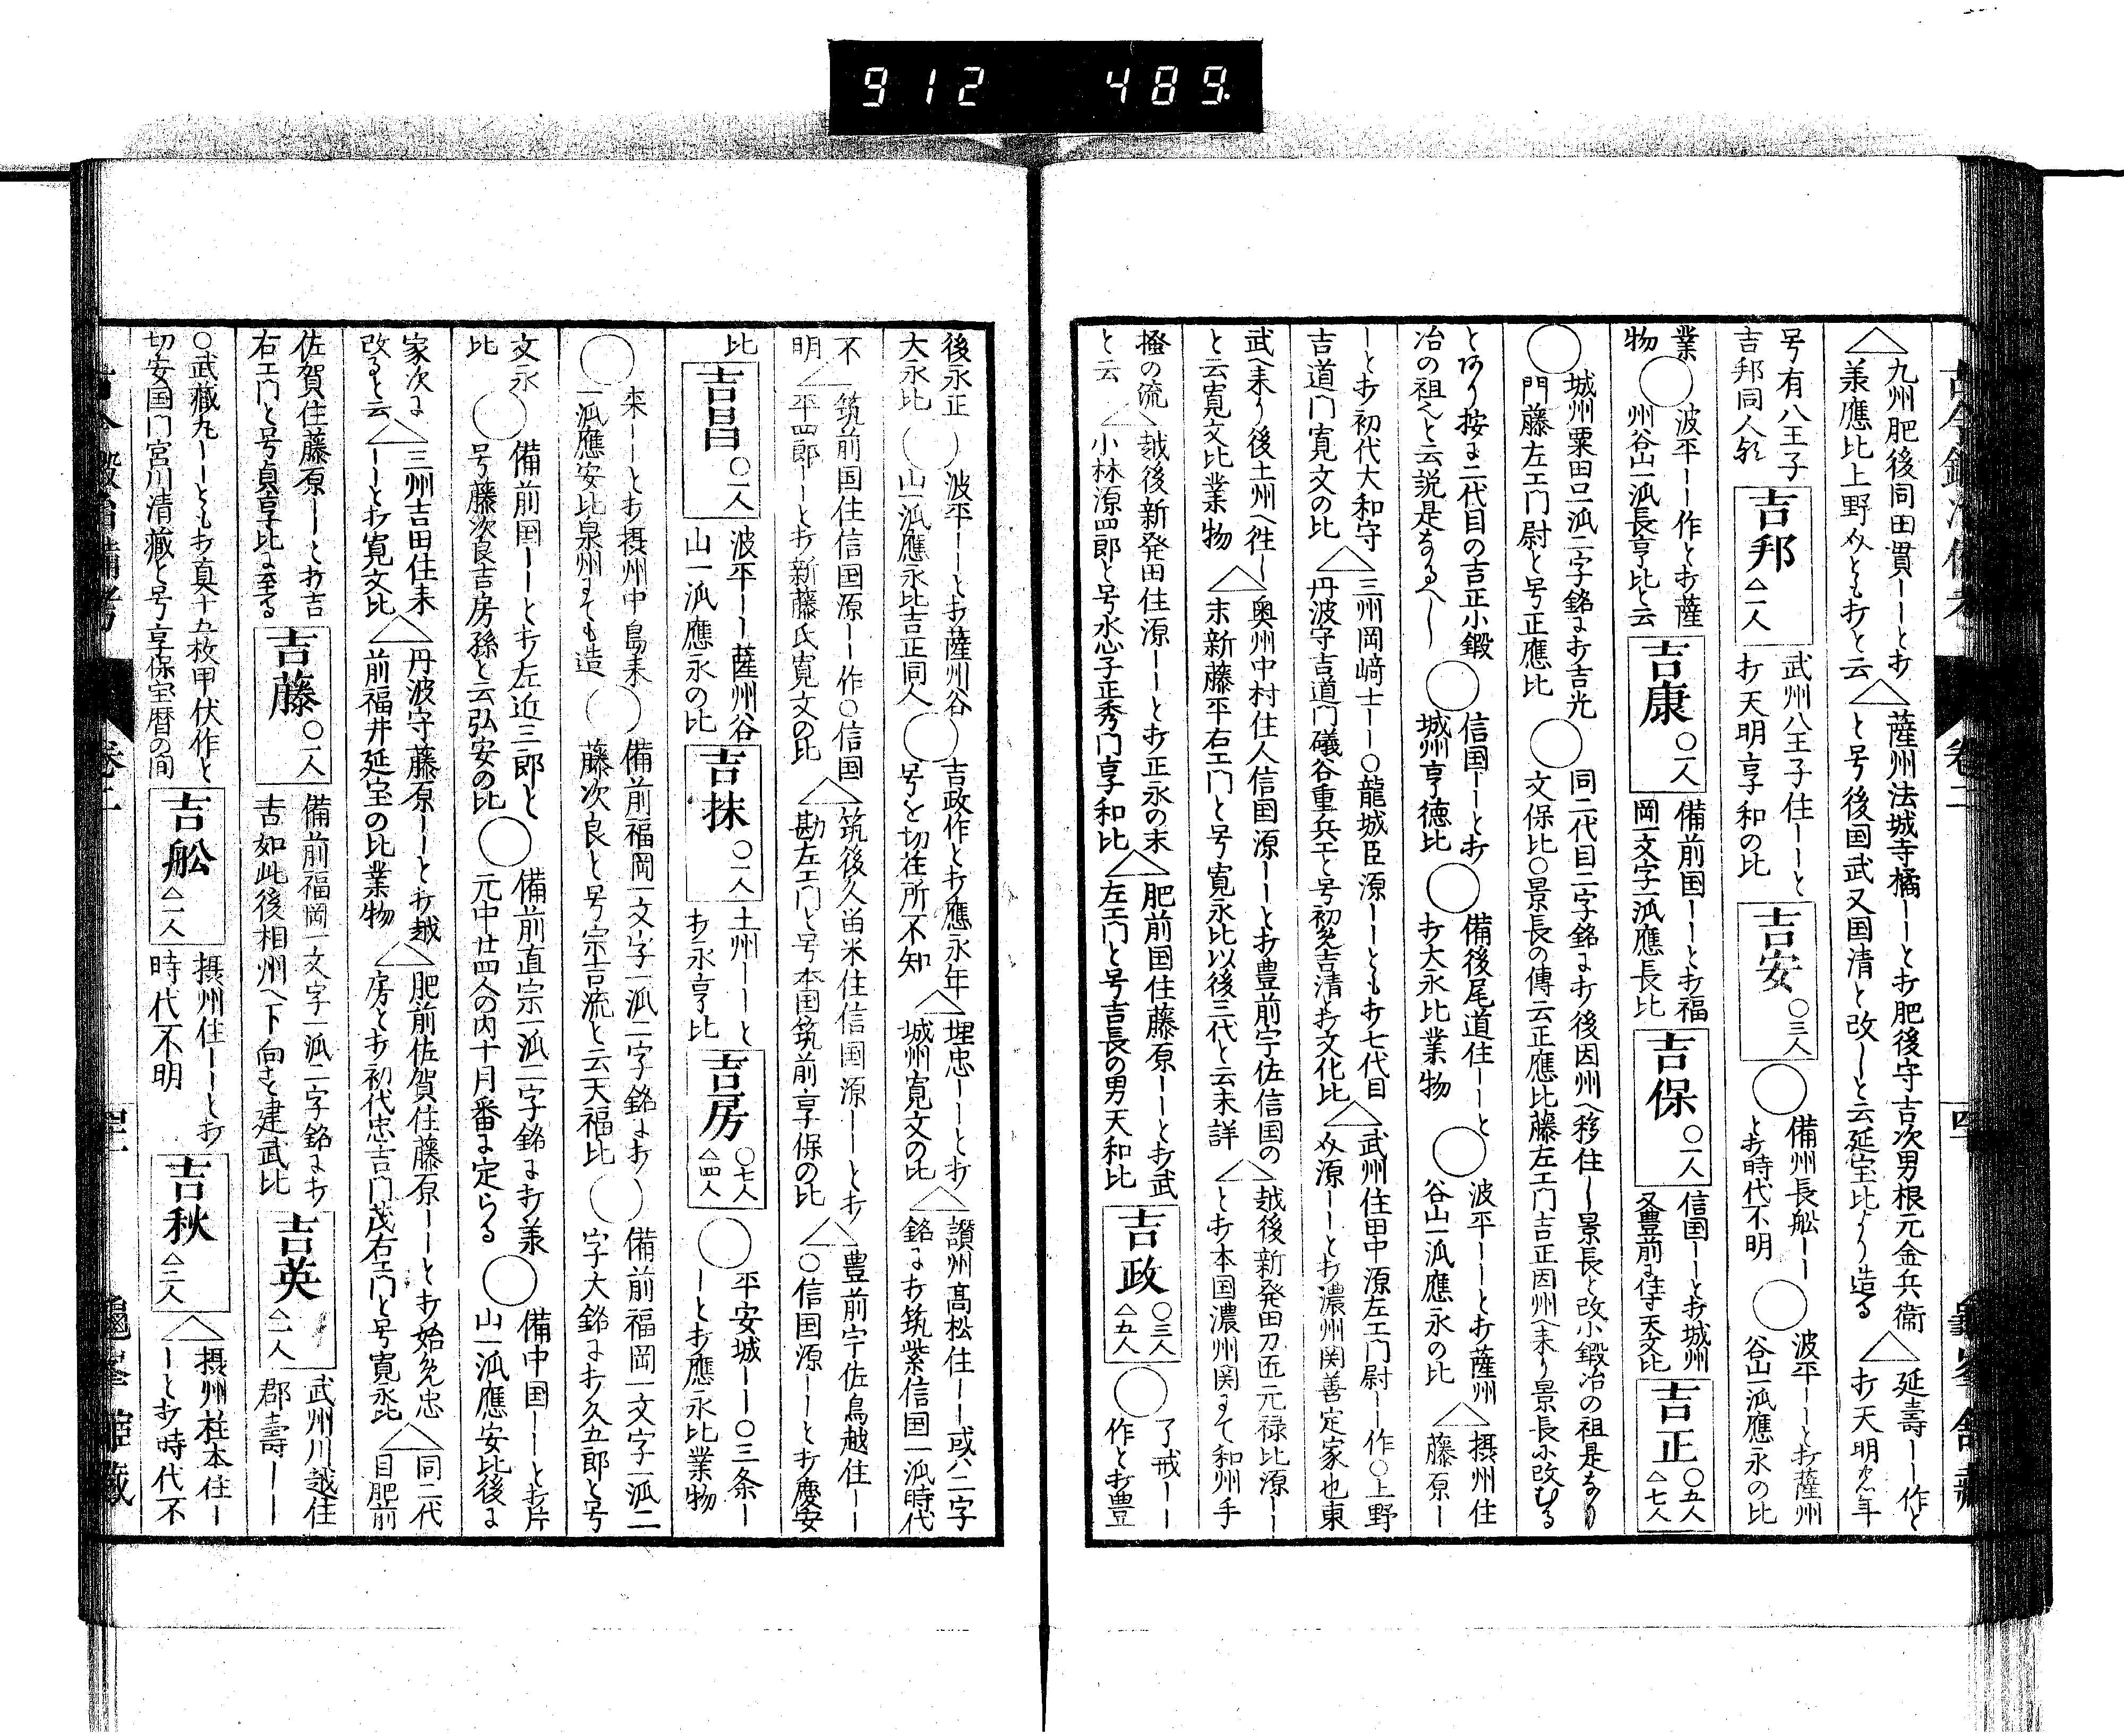 912 489.
△九州肥後同田貫ーーと打
承應比上野介とも打と云
△薩州法城寺橘ーーと打肥後守吉次男根元金兵衛
と号後国武又国清と改ーと云延宝比より造る
△延壽ーー作と
打天明年
号有八王子
吉邦同人歟
吉邦 △一人
武州八王子住ーーと
打天明享和の比
吉安 ○三人
○備州長舩ーー
と打時代不明
○波平ーーと打薩州
谷山一派應永の比
業
物
○波平ーー作と打薩
州谷山一派長亨比と云
吉康 ○一人
備前国ーーと打福
岡一文字一派應長比
吉保 ○一人
信国ーーと打城州
又豊前に住す天文比
吉正 ○五人 △七人
○城州粟田口一派二字銘に打吉光
門藤左エ門尉と号正應比
○同二代目二字銘に打後因州へ移住し景長と改小鍛冶の祖是なり
文保比○景長の傳云正應比藤左エ門吉正因州へ来り景長に改むる
とあり按に二代目の吉正小鍛
冶の祖と云説是なるべし
○信国ーーと打
城州亨徳比
○備後尾道住ーーと
打大永比業物
○波平ーーと打薩州
谷山一派應永の比
△摂州住
藤原ー
ーと打初代大和守
吉道門寛文の比
△三州岡﨑士ーー○龍城臣源ーーとも打七代目
丹波守吉道門礒谷重兵エと号初め吉清と打文化比
△武州住田中源左エ門尉ーー作○上野
介源ーーと打濃州関善定家也東
武へ来り後土州へ往し
と云寛文比業物
△奥州中村住人信国源ーーと打豊前宇佐信国の
末新藤平右エ門と号寛永比以後三代と云未詳
△越後新発田刀匠元禄比源ー
ーと打本国濃州関にて和州手
搔の流
と云
△越後新発田住源ーーと打正永の末
小林源四郎と号水心子正秀門享和比
△肥前国住藤原ーーと打武
左エ門と号吉長の男天和比
吉政 ○三人 △五人
○了戒ーー
作と打豊
後永正
大永比
○波平ーーと打薩州谷
山一派應永比吉正同人
○吉政作と打應永年
号を切住所不知
△埋忠ーーと打
城州寛文の比
△讃州髙松住ーー或ハ二字
銘に打筑紫信国一派時代
不
明
△筑前国住信国源ーー作○信国
平四郎ーーと打新藤氏寛文の比
△筑後久留米住信国源ーーと打
勘左エ門と号本国筑前享保の比
△豊前宇佐鳥越住ーー
○信国源ーーと打慶安
比
吉昌 ○一人
波平ーー薩州谷
山一派應永の比
吉抹 ○一人
土州ーーと
打永亨比
吉房 ○七人 △四人
○平安城ーー○三条ー
ーと打應永比業物
○来ーーと打摂州中島来
一派應安比泉州にても造
○備前福岡一文字一派二字銘に打
藤次良と号宗吉流と云天福比
○備前福岡一文字一派二
字大銘に打久五郎と号
文永
比
○備前国ーーと打左近三郎と
号藤次良吉房孫と云弘安の比
○備前直宗一派二字銘に打兼
元中廿四人の内十月番に定らる
○備中国ーーと打片
山一派應安比後に
家次に
改ると云
△三州吉田住来
ーーと打寛文比
△丹波守藤原ーーと打越
前福井延宝の比業物
△肥前佐賀住藤原ーーと打始め忠
房と打初代忠吉門茂右エ門と号寛永比
△同二代
目肥前
佐賀住藤原ーーと打吉
右エ門と号貞享比に至る
吉藤 ○一人
備前福岡一文字一派二字銘に打
吉如此後相州へ下向と建武比
吉英 △二人
武州川越住
郡壽ーー
○武藏丸ーーとも打真十五枚甲伏作と
切安国門宮川清藏と号享保宝暦の間
吉舩 △一人
摂州住ーーと打
時代不明
吉秋 △三人
△摂州社本住ー
ーと打時代不
古今鍛冶備考 卷二